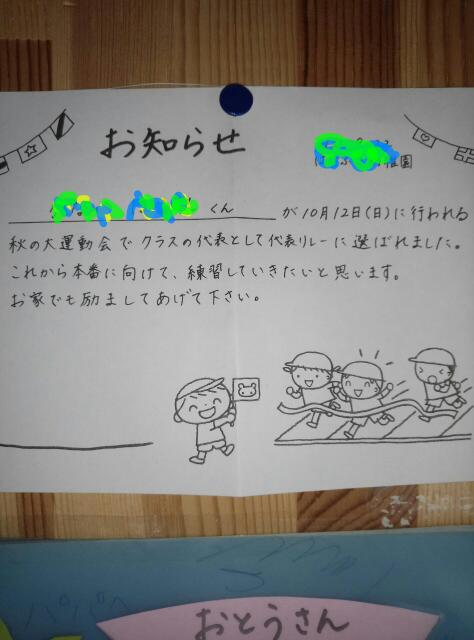 お知らせ
稚園
くん が10月12日(日)に行われる
秋の大運動会でクラスの代表として代表リレーに選ばれました。
これから本番に向けて、練習していきたいと思います。
お家でも励ましてあげて下さい。
パパへ
おとうさん